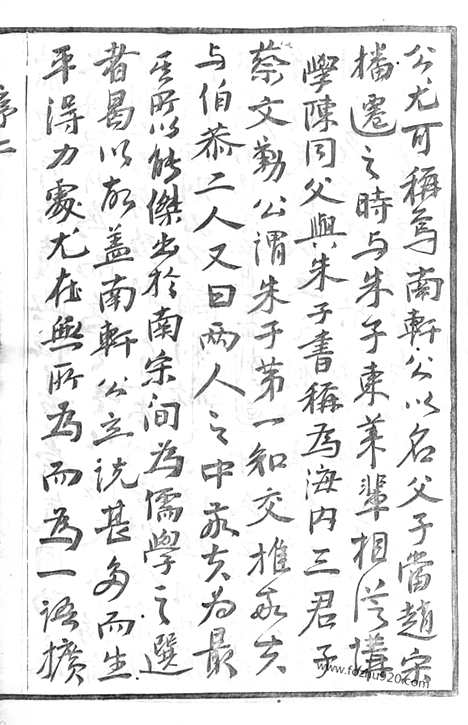 公尤可稱焉南軒公以名父子當趙宋
播遷之時与朱子東萊輩相從講
學陳同父與朱子書稱為海内三君子
蔡文勤公謂朱子第一知交推敬夫
与伯恭二人又曰兩人之中敬夫為最
其所以能傑出於南宋間為儒學之選
者曷以故盖南軒公立説甚多而生
平得力處尤在無所為而為一語擴
序二
www.fozhu920.com